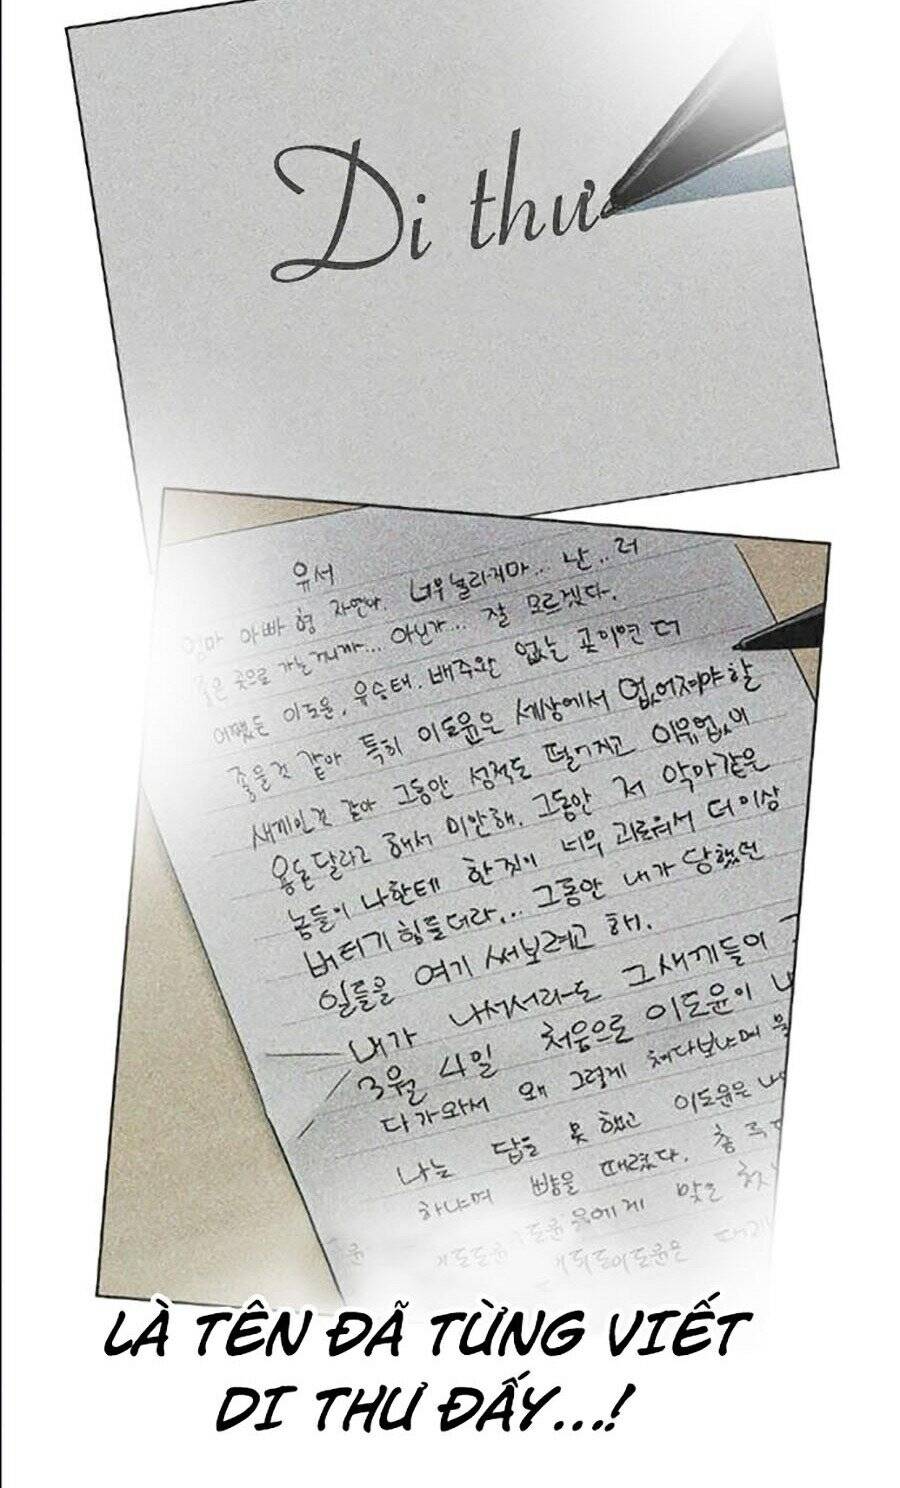 Di thư
유서
엄마 아빠 형 자연아. 너무 놀라지마... 난.. 더
좋은 곳으로 가는거니까... 아닌가... 잘 모르겠다.
어쨌든 이도윤, 유승태, 배주완 없는 곳이면 더
좋을것 같아 특히 이도윤은 세상에서 없어져야할
새끼인것 같아 그동안 성적도 떨어지고 이유없이
용돈달라고 해서 미안해. 그동안 저 악마같은
놈들이 나한테 한짓이 너무 괴로워서 더이상
버티기 힘들더라... 그동안 내가 당했던
일들을 여기 써보려고 해.
내가 나서서라도 그새끼들이
3월 4일 처음으로 이도윤이
다가와서 왜 그렇게 쳐다보냐며
나는 답을 못 했고 이도윤은
하냐며 뺨을 때렸다.
맞은
LÀ TÊN ĐÃ TỪNG VIẾT
DI THƯ ĐẤY...!